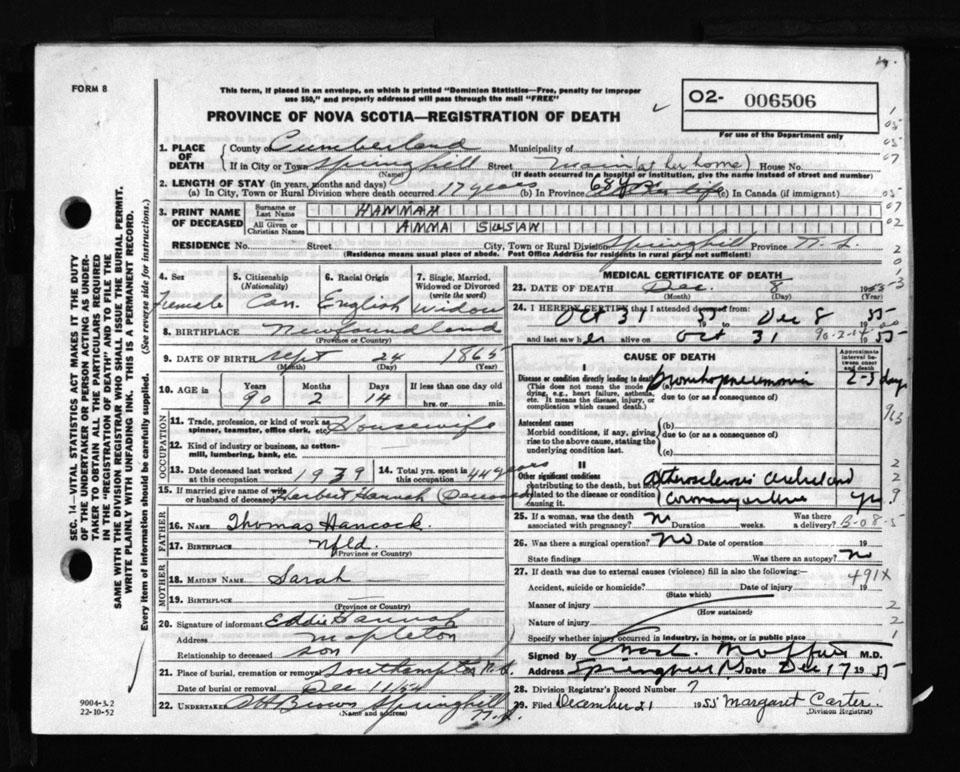 FORM 8
This form, if placed in an envelope, on which is printed "Dominion Statistics—Free, penalty for improper
use $50," and properly addressed will pass through the mail "FREE"
PROVINCE OF NOVA SCOTIA—REGISTRATION OF DEATH
02- 006506
For use of the Department only
1. PLACE OF DEATH
County of Cumberland Municipality of
If in City or Town Springhill Street Main (at her home) House No.
(Name) (If death occurred in a hospital or institution, give the name instead of street and number)
2. LENGTH OF STAY (in years, months and days)
(a) In City, Town or Rural Division where death occurred 17 years (b) In Province 68 yrs life (c) In Canada (if immigrant)
3. PRINT NAME OF DECEASED
Surname or Last Name HANNAH
All Given or Christian Names ANNA SUSAN
RESIDENCE No. Street City, Town or Rural Division Springhill Province N. S.
(Residence means usual place of abode. Post Office Address for residents in rural parts not sufficient)
4. Sex Female
5. Citizenship (Nationality) Can.
6. Racial Origin English
7. Single, Married, Widowed or Divorced (write the word) Widow
8. BIRTHPLACE Newfoundland
(Province or Country)
9. DATE OF BIRTH Sept 24 1865
(Month) (Day) (Year)
10. AGE in Years 90 Months 2 Days 14 If less than one day old hrs. or min.
OCCUPATION
11. Trade, profession, or kind of work as spinner, teamster, office clerk, etc. Housewife
12. Kind of industry or business, as cotton-mill, lumbering, bank, etc.
13. Date deceased last worked at this occupation 1939
14. Total yrs. spent in this occupation 44 years
15. If married give name of wife or husband of deceased Herbert Hannah (Deceased)
FATHER
16. NAME Thomas Hancock.
17. BIRTHPLACE Nfld.
(Province or Country)
MOTHER
18. MAIDEN NAME Sarah
19. BIRTHPLACE
(Province or Country)
20. Signature of informant Eddie Hannah
Address Mapleton
Relationship to deceased son
21. Place of burial, cremation or removal Southampton N.S.
Date of burial or removal Dec 11/54
22. UNDERTAKER A H Brown Springhill N.S.
(Name and address)
MEDICAL CERTIFICATE OF DEATH
23. DATE OF DEATH Dec. 8 1955
(Month) (Day) (Year)
24. I HEREBY CERTIFY that I attended deceased from:
Oct 31 1955 to Dec 8 1955
and last saw her alive on Oct 31 1955
90-2-14
CAUSE OF DEATH
Approximate interval between onset and death
I
Disease or condition directly leading to death Bronchopneumonia 2-3 days
(This does not mean the mode of dying, e.g., heart failure, asthenia, etc. It means the disease, injury, or complication which caused death.)
due to (or as a consequence of)
Antecedent causes
Morbid conditions, if any, giving rise to the above cause, stating the underlying condition last.
(b)
due to (or as a consequence of)
(c)
II
Other significant conditions contributing to the death, but not related to the disease or condition causing it.
Atherosclerosis cerebral and
Coronary arteries yrs.
25. If a woman, was the death associated with pregnancy? No Duration weeks. Was there a delivery?
B-08-5
26. Was there a surgical operation? No Date of operation 19
State findings Was there an autopsy? No
27. If death was due to external causes (violence) fill in also the following:—
491X
Accident, suicide or homicide? Date of injury 19
(State which)
Manner of injury
(How sustained)
Nature of injury
Specify whether injury occurred in industry, in home, or in public place
Signed by Moffatt M.D.
Address Springhill NS Date Dec 17 1955
28. Division Registrar's Record Number 7
29. Filed December 21 1955 Margaret Carter
(Division Registrar)
9004-3.2
22-10-52
SEC. 14—VITAL STATISTICS ACT MAKES IT THE DUTY
OF THE UNDERTAKER OR PERSON ACTING AS UNDER-
TAKER TO OBTAIN ALL THE PARTICULARS REQUIRED
IN THE "REGISTRATION OF DEATH" AND TO FILE THE
SAME WITH THE DIVISION REGISTRAR WHO SHALL ISSUE THE BURIAL PERMIT.
WRITE PLAINLY WITH UNFADING INK. THIS IS A PERMANENT RECORD.
Every item of information should be carefully supplied. (See reverse side for instructions.)